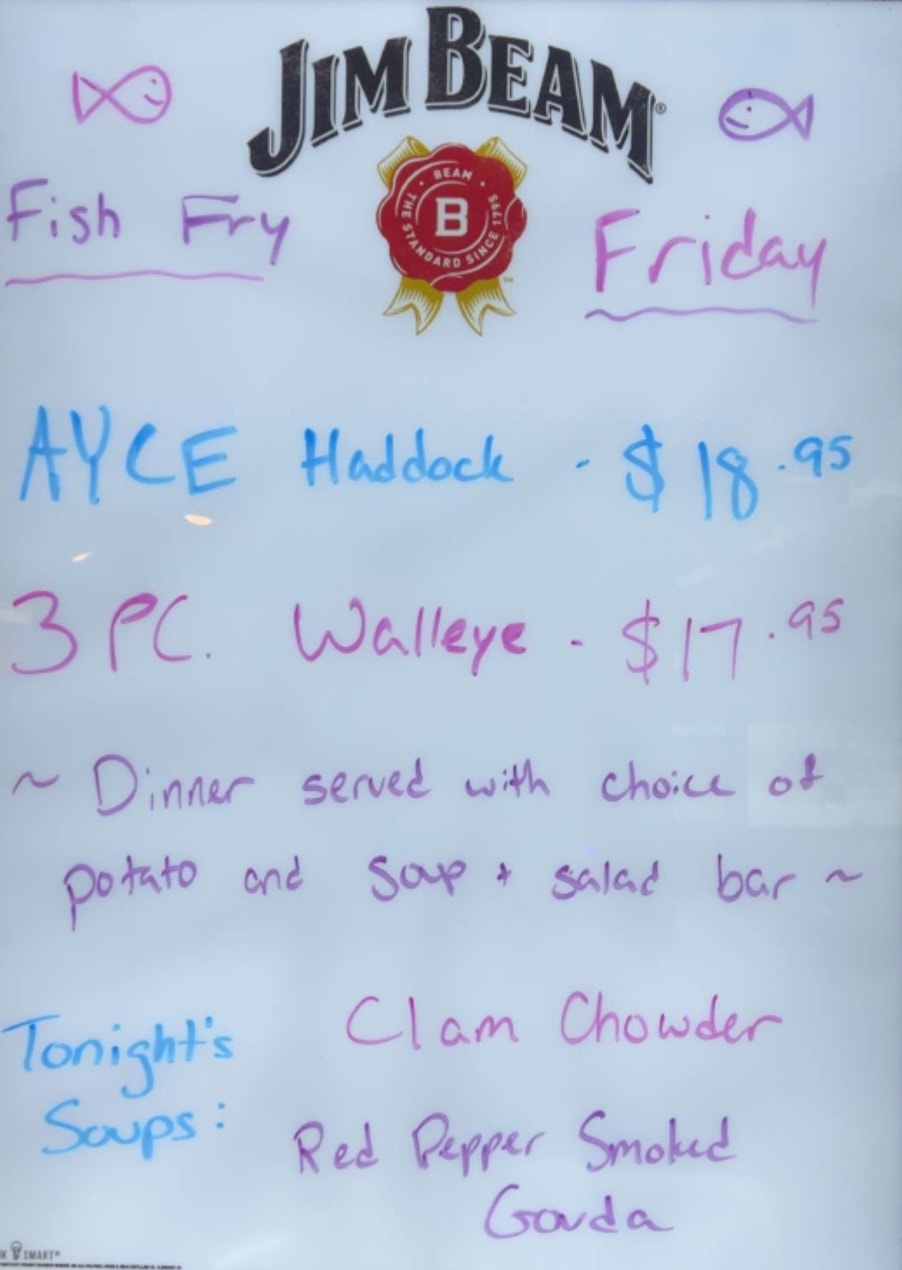 JIM BEAM®
BEAM
THE STANDARD SINCE 1795
B
™
Fish Fry
Friday
AYCE Haddock - $18.95
3 PC. Walleye - $17.95
~ Dinner served with choice of
potato and soup + salad bar ~
Tonight's
Soups:
Clam Chowder
Red Pepper Smoked
Gouda
SMART®